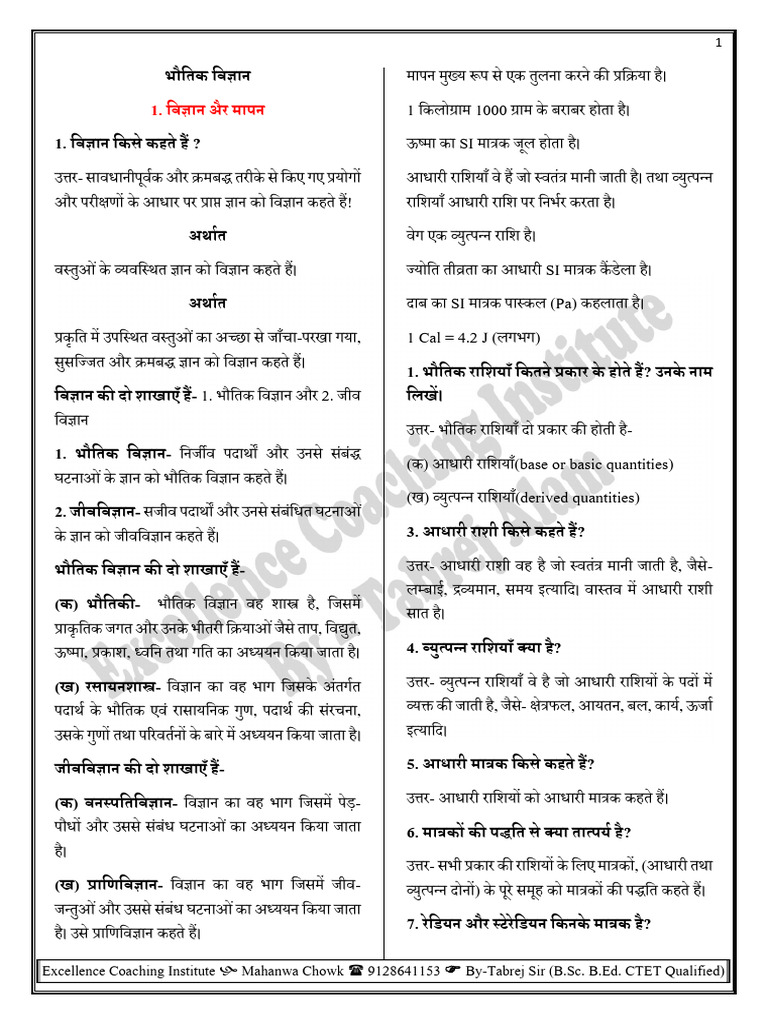 1
भौतिक विज्ञान
1. विज्ञान और मापन
1. विज्ञान किसे कहते हैं ?
उत्तर- सावधानीपूर्वक और क्रमबद्ध तरीके से किए गए प्रयोगों
और परीक्षणों के आधार पर प्राप्त ज्ञान को विज्ञान कहते हैं!
अर्थात
वस्तुओं के व्यवस्थित ज्ञान को विज्ञान कहते हैं।
अर्थात
प्रकृति में उपस्थित वस्तुओं का अच्छा से जाँचा-परखा गया,
सुसज्जित और क्रमबद्ध ज्ञान को विज्ञान कहते हैं।
विज्ञान की दो शाखाएँ हैं- 1. भौतिक विज्ञान और 2. जीव
विज्ञान
1. भौतिक विज्ञान- निर्जीव पदार्थों और उनसे संबंद्ध
घटनाओं के ज्ञान को भौतिक विज्ञान कहते हैं।
2. जीवविज्ञान- सजीव पदार्थों और उनसे संबंधित घटनाओं
के ज्ञान को जीवविज्ञान कहते हैं।
भौतिक विज्ञान की दो शाखाएँ हैं-
(क) भौतिकी- भौतिक विज्ञान वह शास्त्र है, जिसमें
प्राकृतिक जगत और उनके भीतरी क्रियाओं जैसे ताप, विद्युत,
ऊष्मा, प्रकाश, ध्वनि तथा गति का अध्ययन किया जाता है।
(ख) रसायनशास्त्र- विज्ञान का वह भाग जिसके अंतर्गत
पदार्थ के भौतिक एवं रासायनिक गुण, पदार्थ की संरचना,
उसके गुणों तथा परिवर्तनों के बारे में अध्ययन किया जाता है।
जीवविज्ञान की दो शाखाएँ हैं-
(क) वनस्पतिविज्ञान- विज्ञान का वह भाग जिसमें पेड़-
पौधों और उससे संबंध घटनाओं का अध्ययन किया जाता
है।
(ख) प्राणिविज्ञान- विज्ञान का वह भाग जिसमें जीव-
जन्तुओं और उससे संबंध घटनाओं का अध्ययन किया जाता
है। उसे प्राणिविज्ञान कहते हैं।
मापन मुख्य रूप से एक तुलना करने की प्रक्रिया है।
1 किलोग्राम 1000 ग्राम के बराबर होता है।
ऊष्मा का SI मात्रक जूल होता है।
आधारी राशियाँ वे हैं जो स्वतंत्र मानी जाती है। तथा व्युत्पन्न
राशियाँ आधारी राशि पर निर्भर करता है।
वेग एक व्युत्पन्न राशि है।
ज्योति तीव्रता का आधारी SI मात्रक कैंडेला है।
दाब का SI मात्रक पास्कल (Pa) कहलाता है।
1 Cal = 4.2 J (लगभग)
1. भौतिक राशियाँ कितने प्रकार के होते हैं? उनके नाम
लिखें।
उत्तर- भौतिक राशियाँ दो प्रकार की होती है-
(क) आधारी राशियाँ(base or basic quantities)
(ख) व्युत्पन्न राशियाँ(derived quantities)
3. आधारी राशी किसे कहते हैं?
उत्तर- आधारी राशी वह है जो स्वतंत्र मानी जाती है, जैसे-
लम्बाई, द्रव्यमान, समय इत्यादि। वास्तव में आधारी राशी
सात है।
4. व्युत्पन्न राशियाँ क्या है?
उत्तर- व्युत्पन्न राशियाँ वे है जो आधारी राशियों के पदों में
व्यक्त की जाती है, जैसे- क्षेत्रफल, आयतन, बल, कार्य, ऊर्जा
इत्यादि।
5. आधारी मात्रक किसे कहते हैं?
उत्तर- आधारी राशियों को आधारी मात्रक कहते हैं।
6. मात्रकों की पद्धति से क्या तात्पर्य है?
उत्तर- सभी प्रकार की राशियों के लिए मात्रकों, (आधारी तथा
व्युत्पन्न दोनों) के पूरे समूह को मात्रकों की पद्धति कहते हैं।
7. रेडियन और स्टेरेडियन किनके मात्रक है?
Excellence Coaching Institute
By - Tabrej Alam
Excellence Coaching Institute Mahanwa Chowk ☎ 9128641153 ☛ By-Tabrej Sir (B.Sc. B.Ed. CTET Qualified)